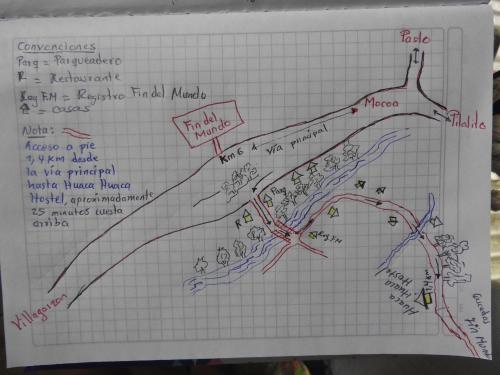 Convenciones
Parq = Parqueadero
R = Restaurante
Reg F.M = Registro Fin del Mundo
= casas
Nota:
Acceso a pie
1,4 Km desde
la vía principal
hasta Huaca Huaca
Hostel, aproximadamente
25 minutos cuesta
arriba
Pasto
Mocoa
Pitalito
Fin del
Mundo
Km 6
vía principal
Parq
R
Villagarzon
1,4 Km
Huaca
Huaca
Hostel
Fin Mundo